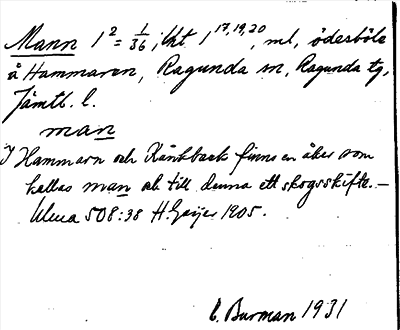 Mann 1² = 1/36, lht 1¹⁷,¹⁹,²⁰, ml, ödesböle
å Hammaren, Ragunda sn, Ragunda tg,
Jämtl. l.
man
I Hammarn och Känkback finns en åker som
kallas man och till denna ett skogsskifte. –
Ulma 508:38 H. Geijer 1905.
C. Burman 1931